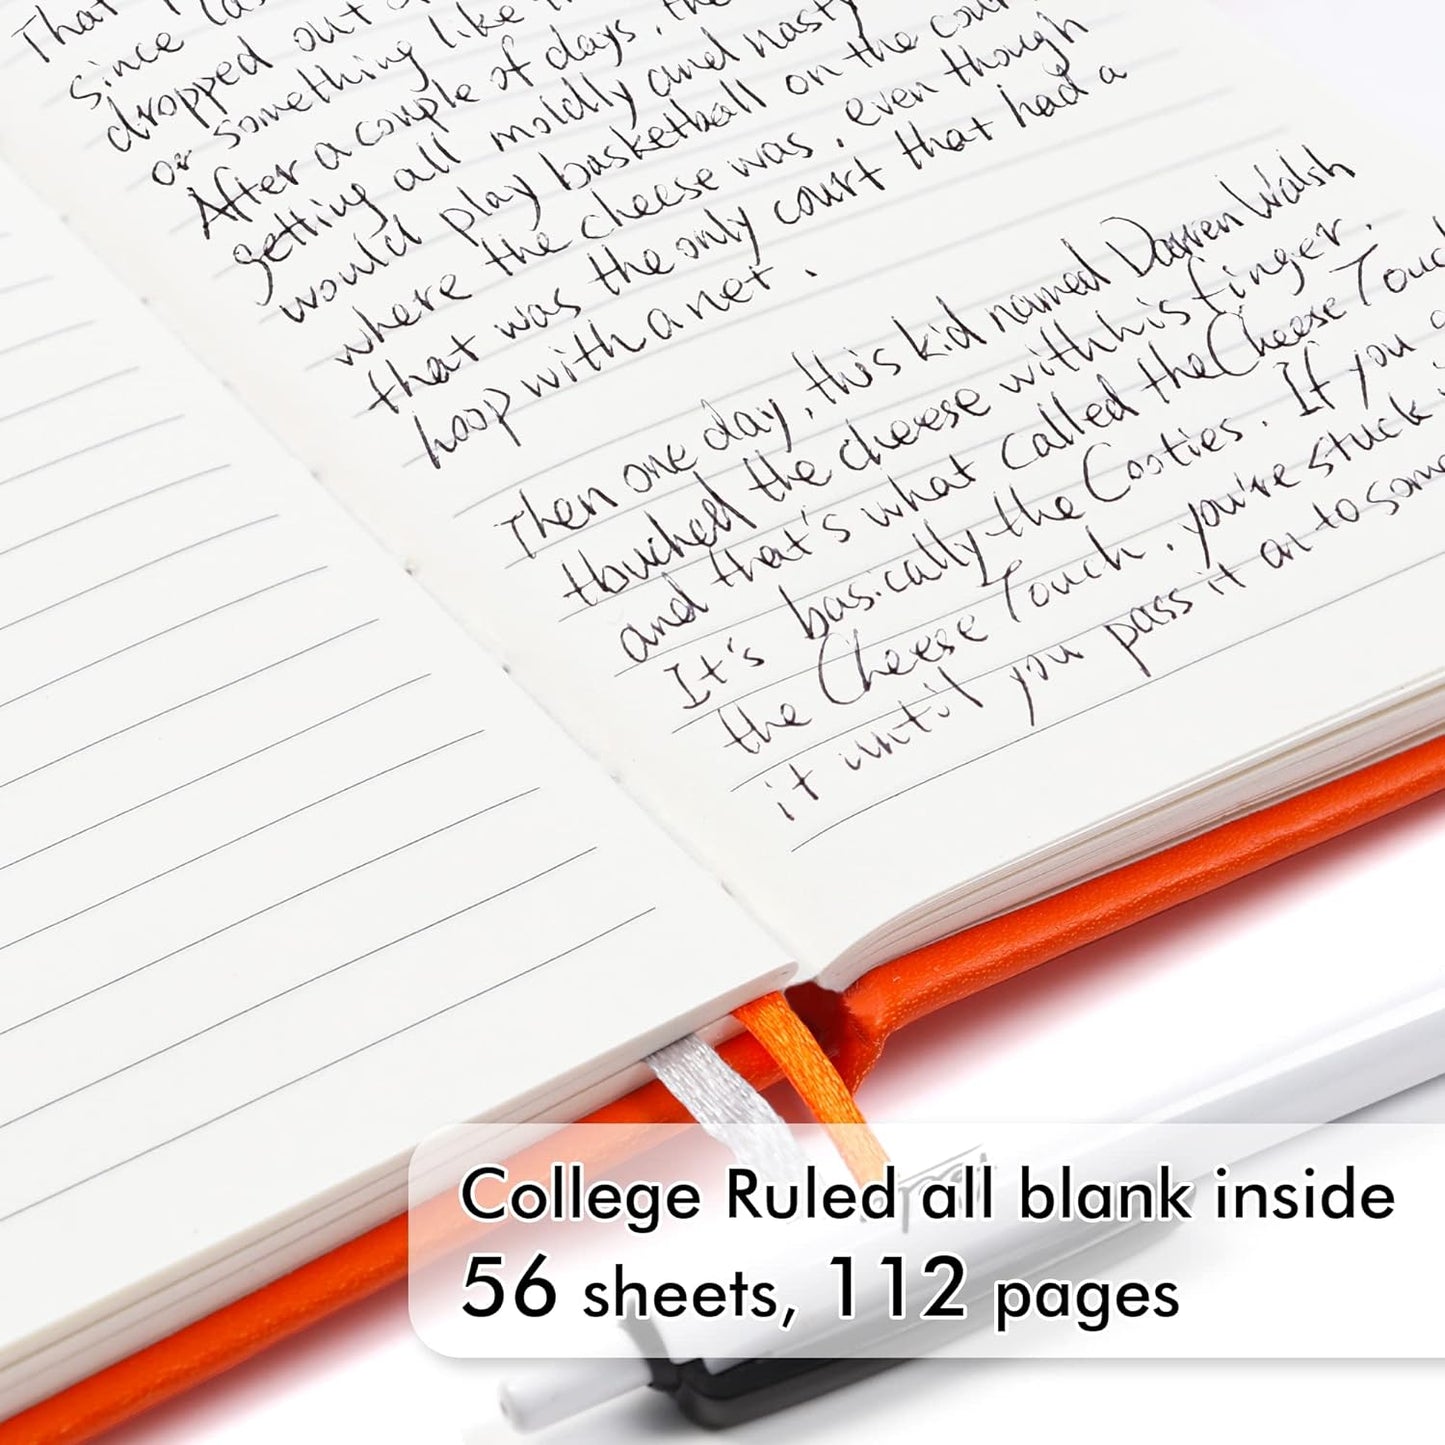 That
since
dropped out of
or something like
After a couple of days, the
getting all moldly and nasty
would play basketball on the court
where the cheese was, even though
that was the only court that had a
hoop with a net.
Then one day, this kid named Darren Walsh
touched the cheese with his finger.
and that's what called the Cheese Touch
It's basically the Cooties. If you g
the Cheese Touch, you're stuck
it until you pass it on to some
College Ruled all blank inside
56 sheets, 112 pages